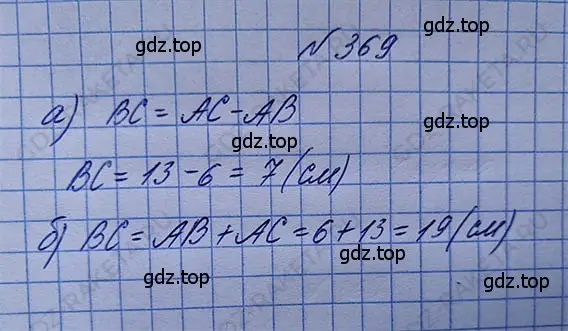 gdz.top
№369
а) BC = AC - AB
gdz.top
BC = 13 - 6 = 7 (см)
gdz.top
б) BC = AB + AC = 6 + 13 = 19 (см)
gdz.top
gdz.top
gdz.top
GDZ-RAKETA.RU